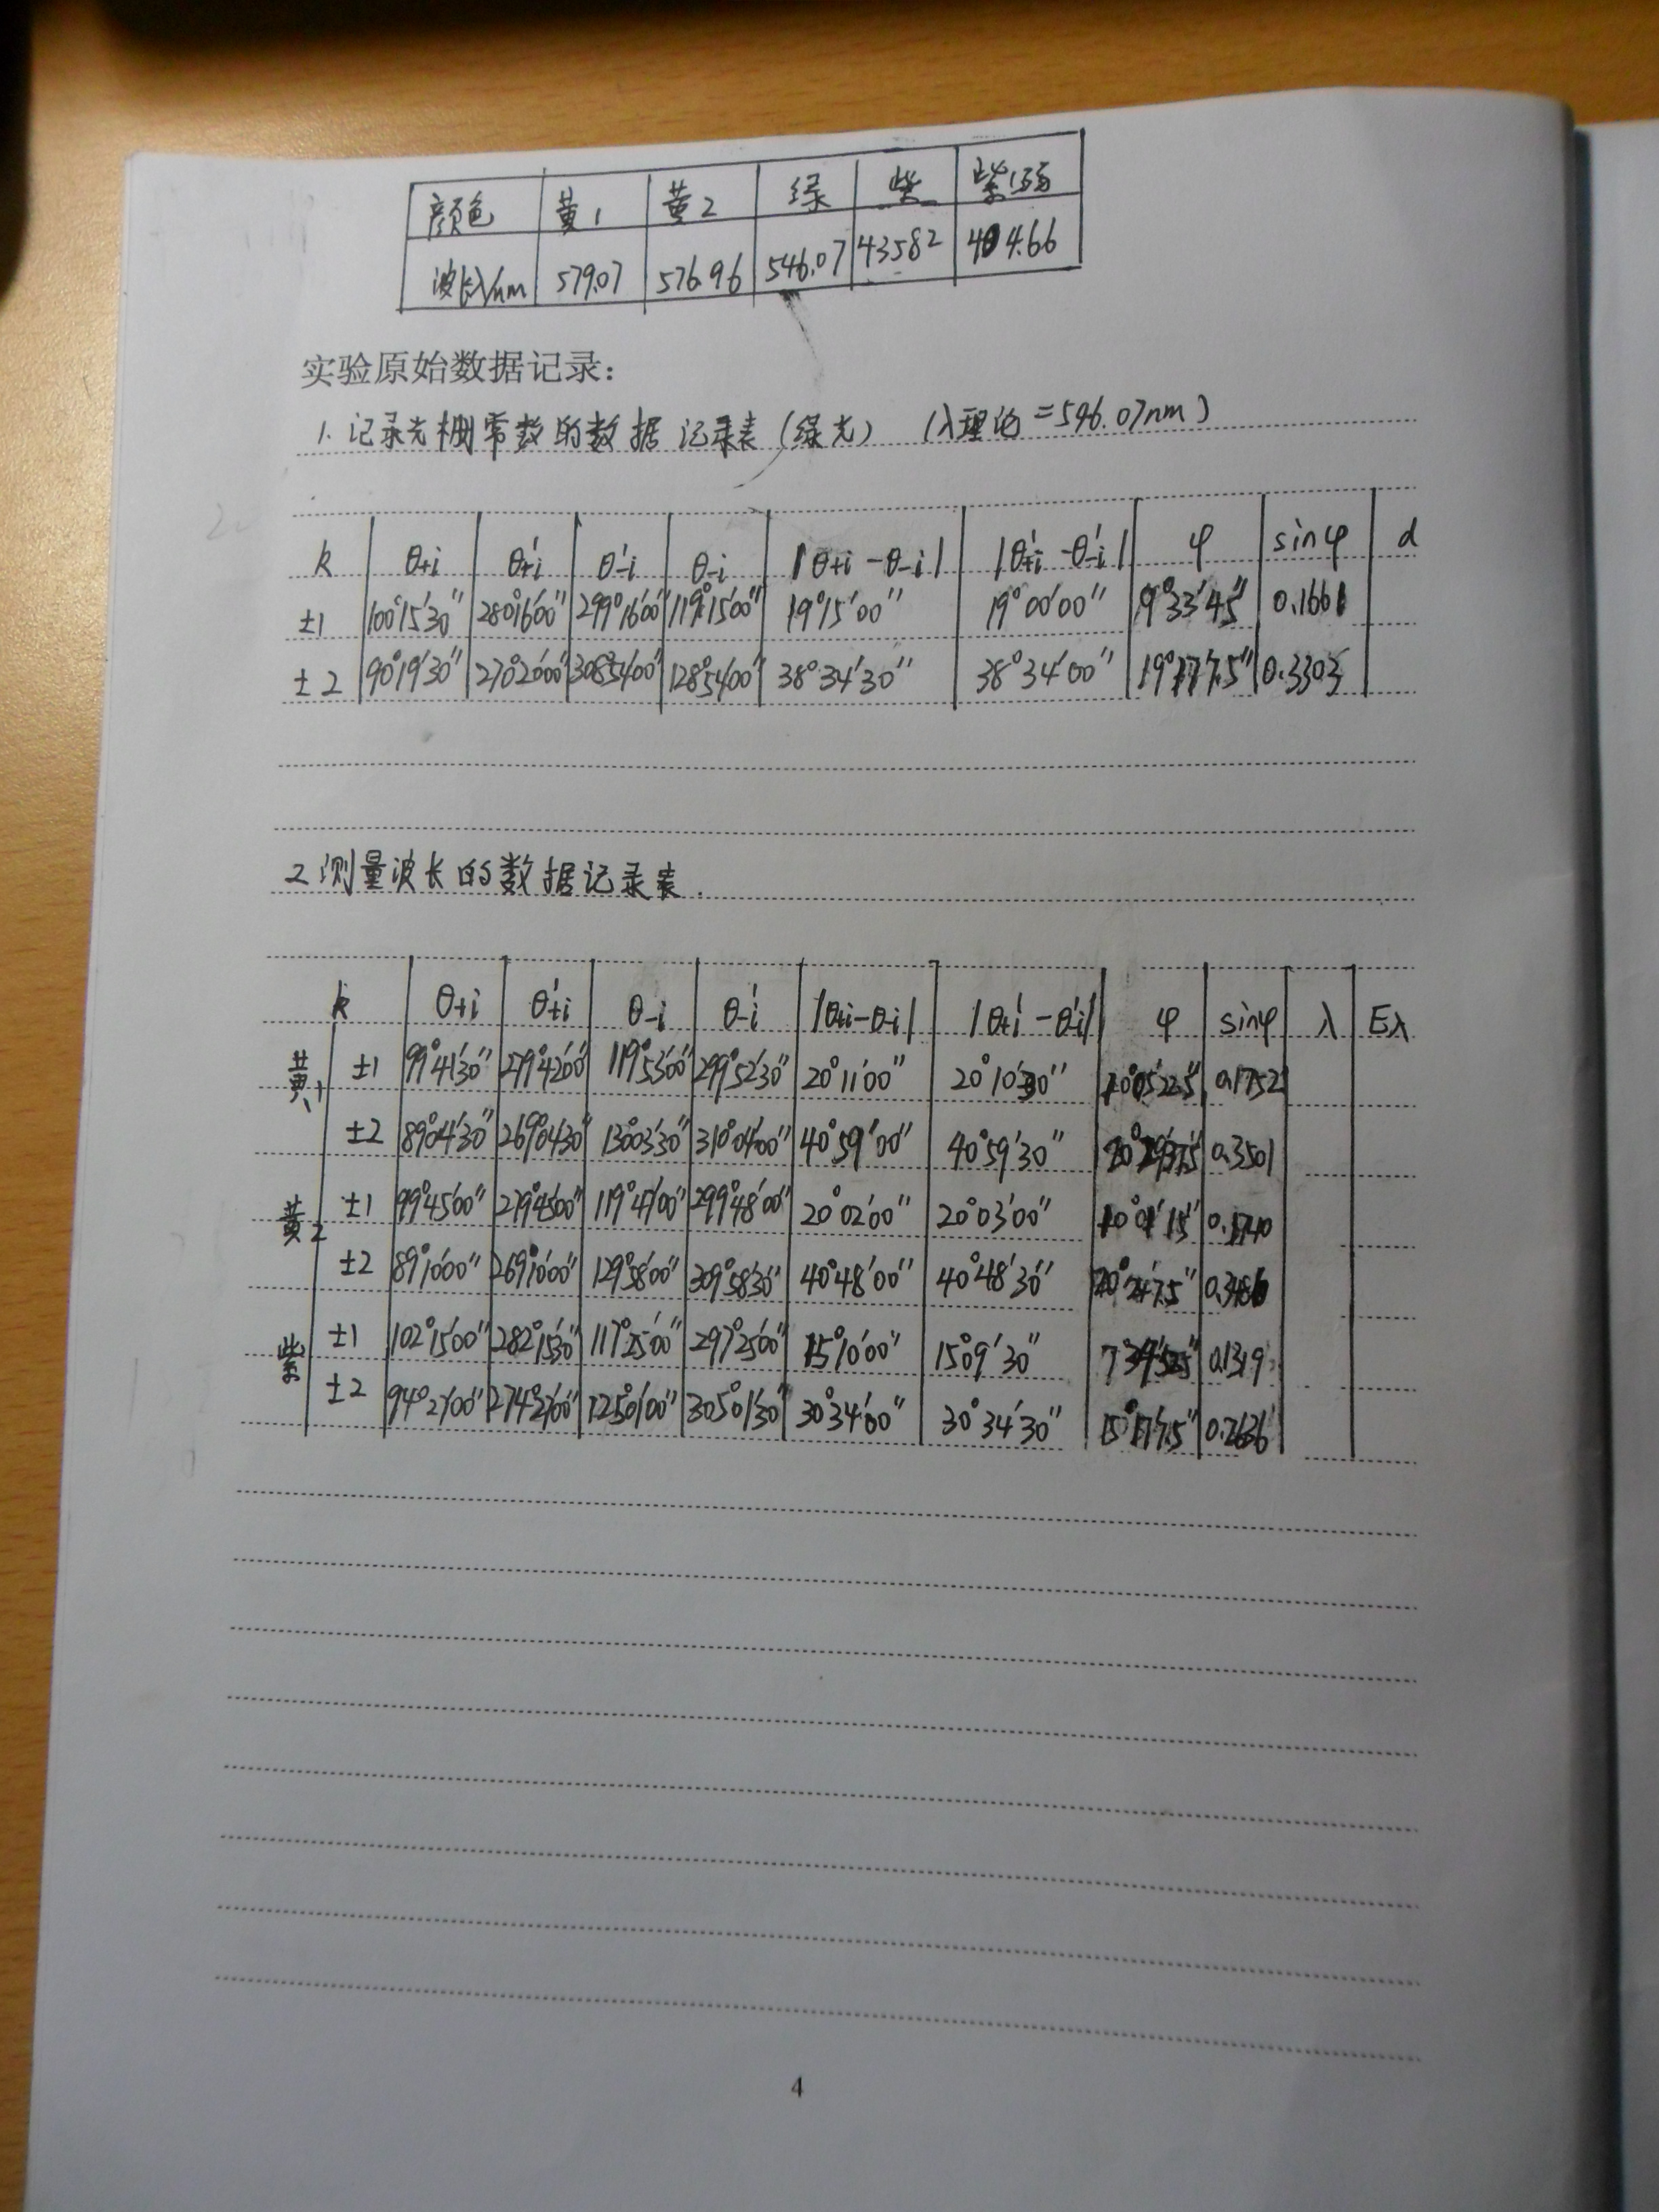 颜色 黄1 黄2 绿 紫 紫弱
波长λ/nm 579.07 576.96 546.07 435.82 404.66
实验原始数据记录：
1. 记录光栅常数的数据记录表（绿光） （λ理论=546.07nm）
k θ+i θ'+i θ'-i θ-i |θ+i-θ-i| |θ'+i-θ'-i| φ sinφ d
±1 100°15'30" 280°16'00" 299°16'00" 119°15'00" 19°15'00" 19°00'00" 9°33'45" 0.1661
±2 90°19'30" 270°20'00" 308°54'00" 128°54'00" 38°34'30" 38°34'00" 19°17'7.5" 0.3303
2 测量波长的数据记录表.
k θ+i θ'+i θ-i θ-i' |θ+i-θ-i| |θ+i'-θ-i'| φ sinφ λ Eλ
黄1 ±1 99°41'30" 279°42'00" 119°53'00" 299°52'30" 20°11'00" 20°10'30" 10°05'22.5" 0.1752
±2 89°04'30" 269°04'30" 130°03'30" 310°04'00" 40°59'00" 40°59'30" 20°29'37.5" 0.3501
黄2 ±1 99°45'00" 279°45'00" 119°47'00" 299°48'00" 20°02'00" 20°03'00" 10°01'15" 0.1740
±2 89°10'00" 269°10'00" 129°58'00" 309°58'30" 40°48'00" 40°48'30" 20°24'7.5" 0.3486
紫 ±1 102°15'00" 282°15'30" 117°25'00" 297°25'00" 15°10'00" 15°09'30" 7°34'52.5" 0.1319
±2 94°27'00" 274°27'00" 125°01'00" 305°01'30" 30°34'00" 30°34'30" 15°17'7.5" 0.2636
4